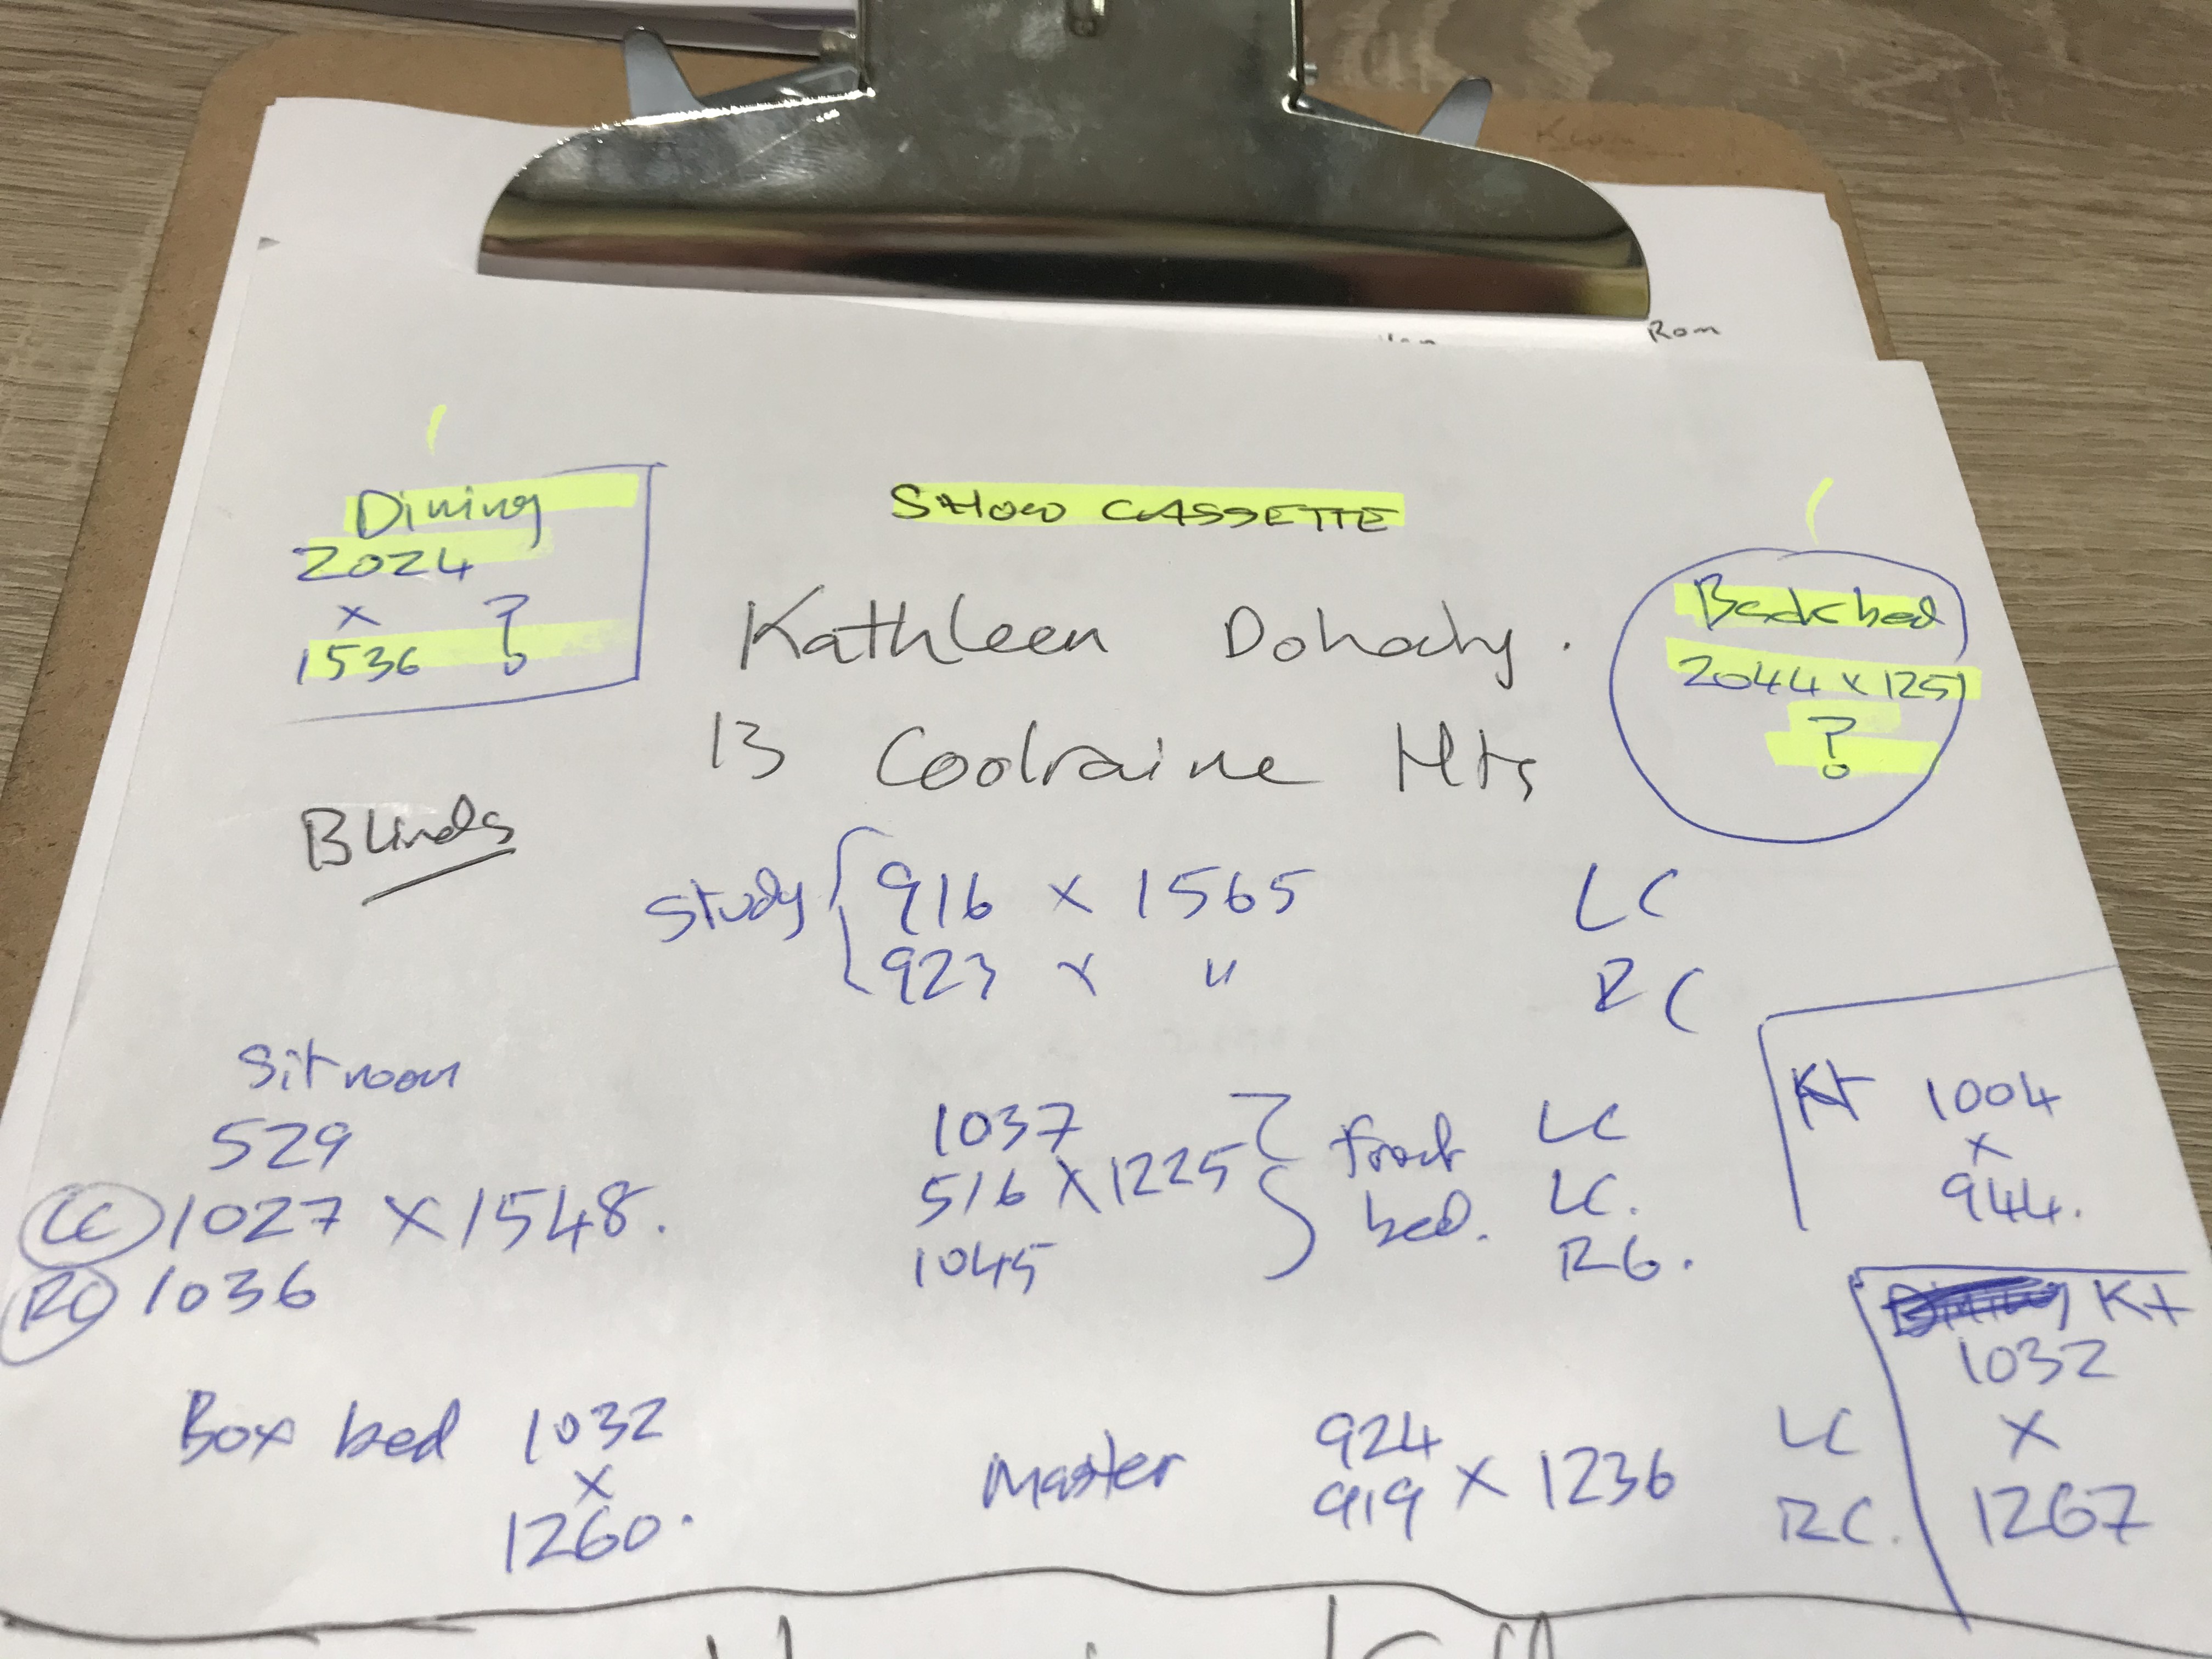 Rom
SHOW CASSETTE
Dining
2024
x
1536 ?
Back bed
2044 x 1251
?
Kathleen Dohody.
13 Coolraine Hts
Blinds
Study { 916 x 1565 LC
923 x " RC
Sit room
529
LC 1027 x 1548.
RC 1036
1037
516 x 1225
1045
front
bed.
LC
LC.
RC.
Kt 1004
x
944.
Kt
1032
x
1267
Box bed 1032
x
1260.
Master
924
919 x 1236
LC
RC.